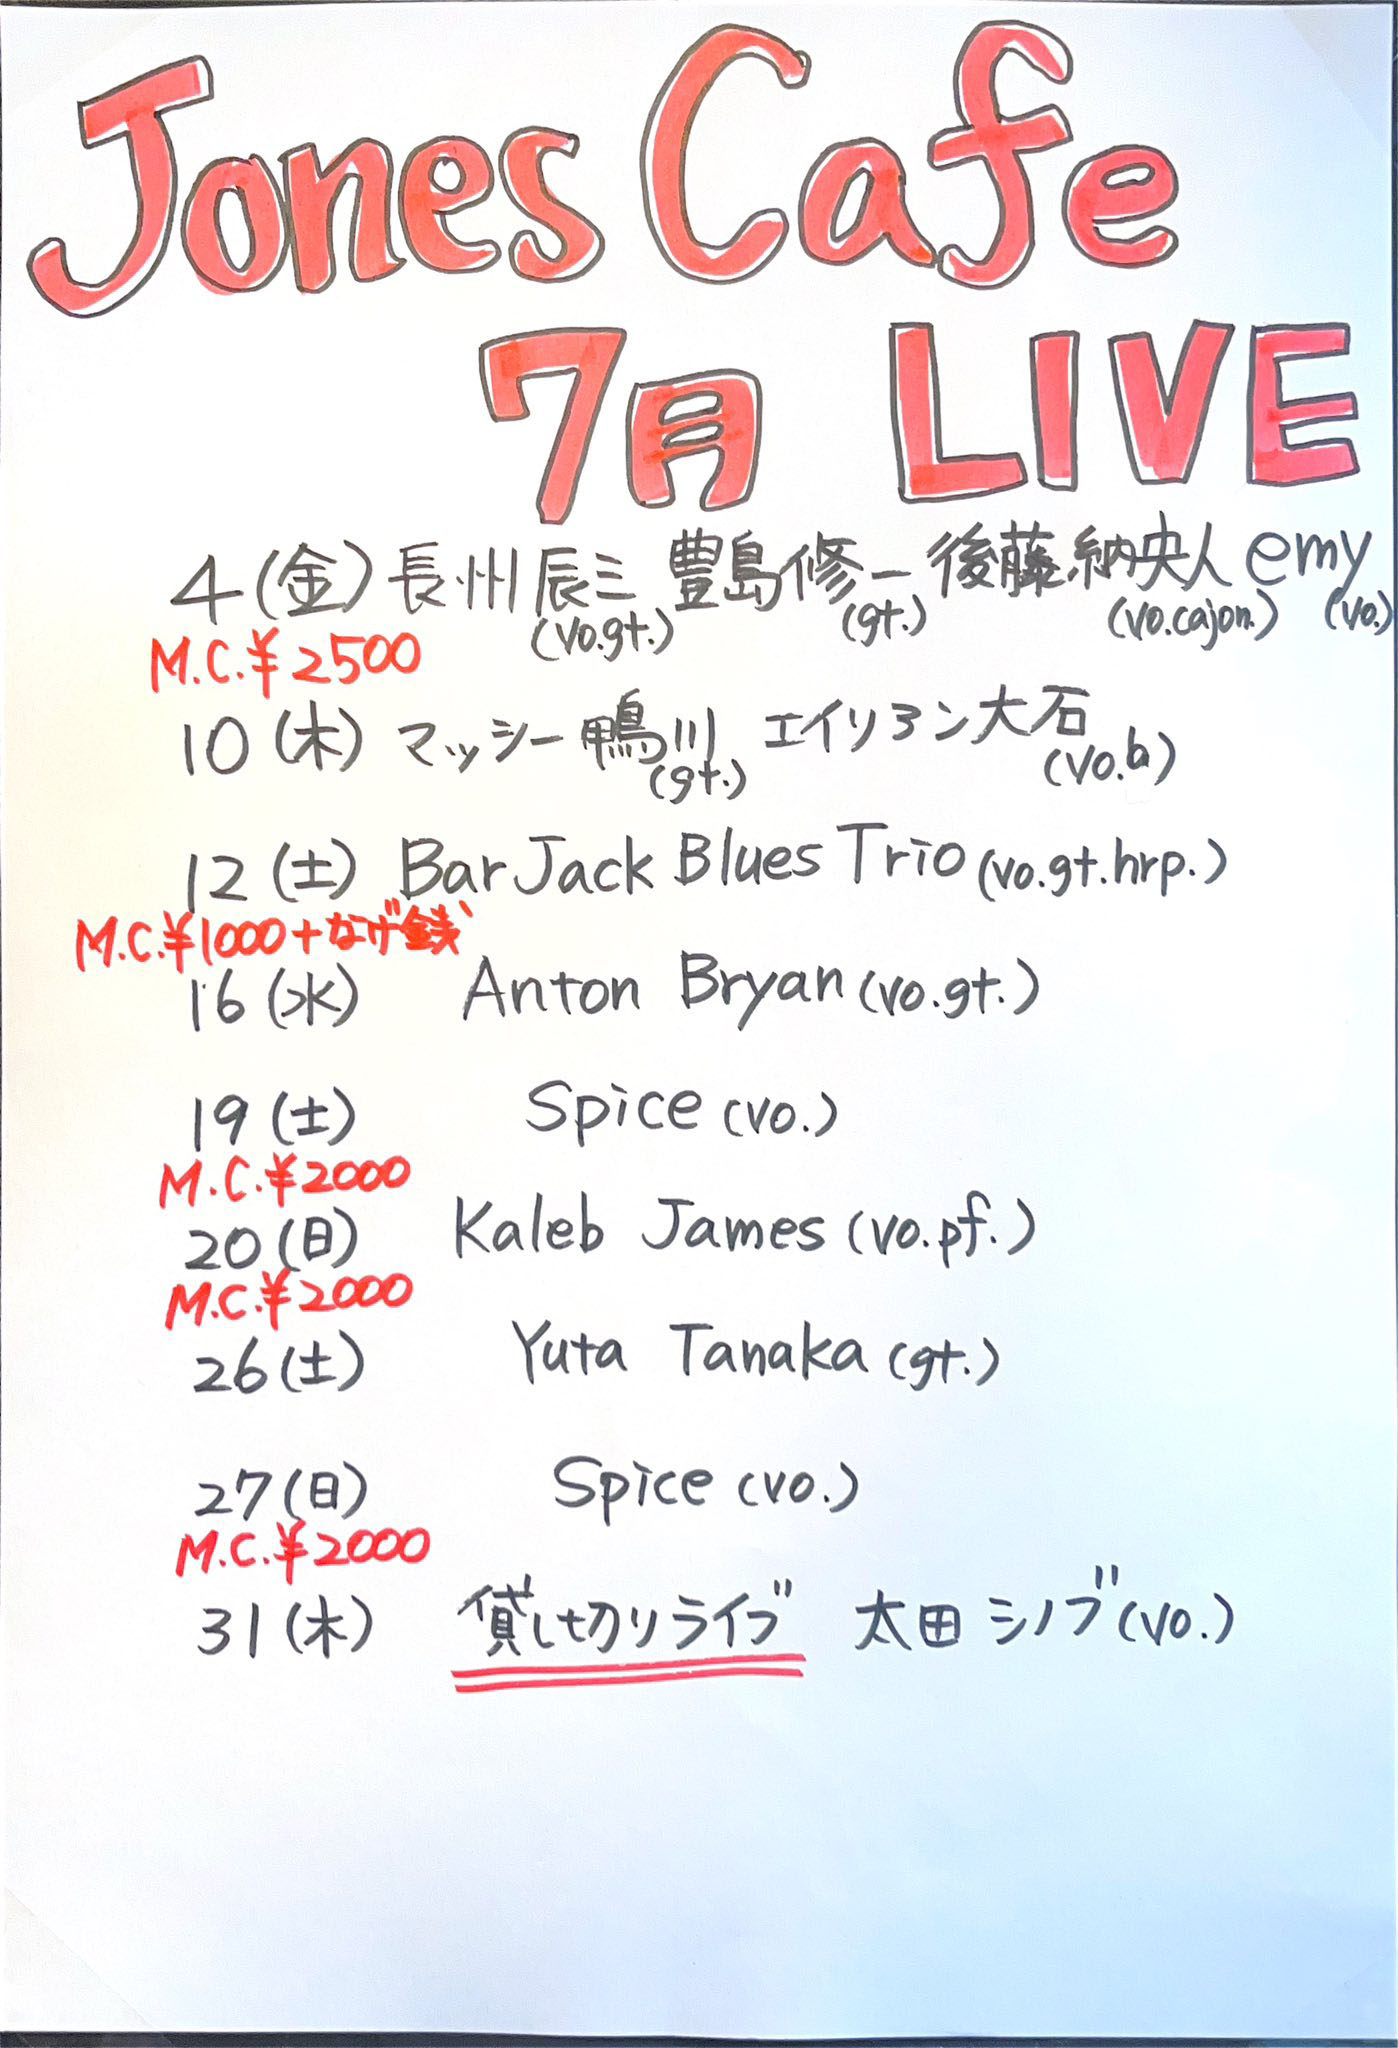 Jones Cafe
7月 LIVE
4(金) 長州辰三(vo.gt.) 豊島修一(gt.) 後藤納央人(vo.cajon.) emy(vo.)
M.C.¥2500
10(木) マッシー鴨川(gt.) エイリアン大石(vo.b)
12(土) Bar Jack Blues Trio(vo.gt.hrp.)
M.C.¥1000+なげ銭
16(水) Anton Bryan(vo.gt.)
19(土) Spice(vo.)
M.C.¥2000
20(日) Kaleb James(vo.pf.)
M.C.¥2000
26(土) Yuta Tanaka(gt.)
27(日) Spice(vo.)
M.C.¥2000
31(木) 貸し切りライブ 太田シノブ(vo.)